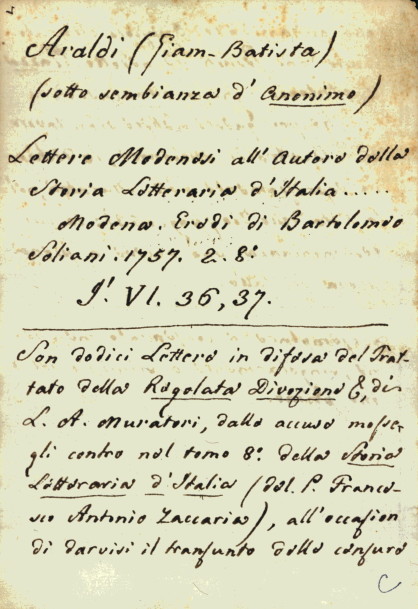 Araldi (Giam-Batista)
(sotto sembianza d' Anonimo)
Lettere Modenesi all' Autore della
Storia Letteraria d' Italia.....
Modena. Eredi di Bartolomeo
Soliani. 1757. 2. 8.°
J.' VI. 36, 37.
Son dodici Lettere in difesa del Trat-
tato della Regolata Divozione &, di
L. A. Muratori, dalle accuse mosse-
gli contro nel tomo 8.° della Storia
Letteraria d' Italia (del P. France-
sco Antonio Zaccaria), all' occasion
di darvisi il transunto delle censure